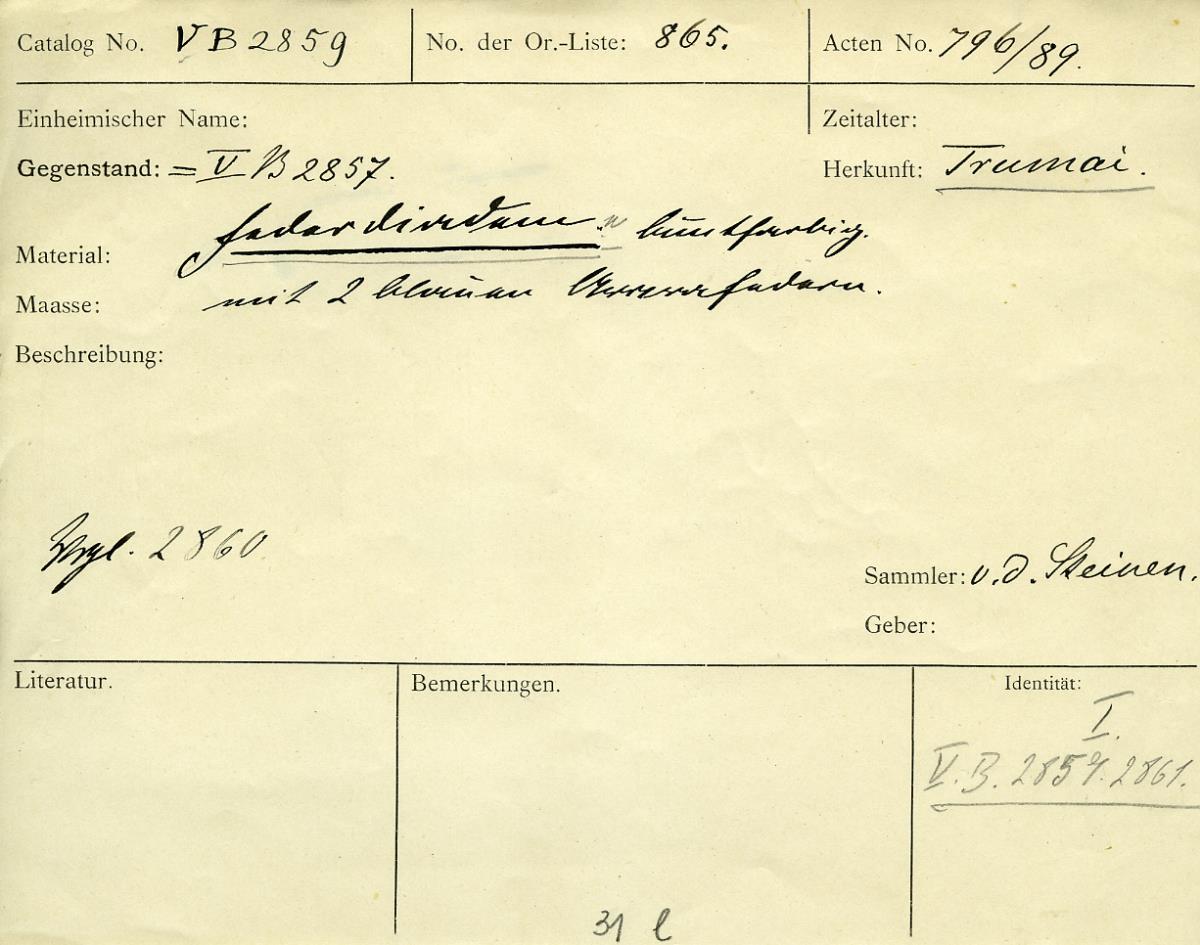 Catalog No. VB 2859 No. der Or.-Liste: 865. Acten No. 796/89.
Einheimischer Name: Zeitalter:
Gegenstand: = V B 2857. Herkunft: Trumai.
Federdiadem buntfarbig.
Material:
mit 2 blauen Ararafedern.
Maasse:
Beschreibung:
Vrgl. 2860
Sammler: v. d. Steinen.
Geber:
Literatur. Bemerkungen. Identität:
I.
V. B. 2857. 2861.
31 l